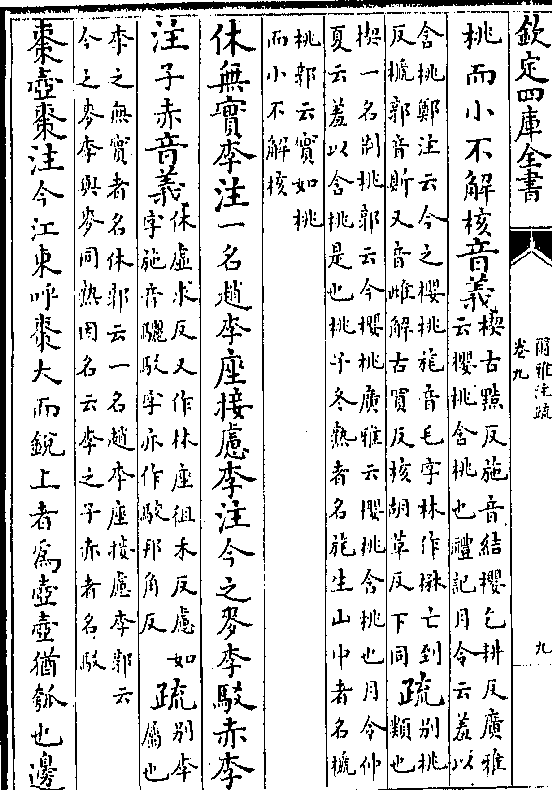 欽定四庫全書
爾雅注疏
卷九
九
桃而小不解核音義楔古黠反施音結櫻乞耕反廣雅
云櫻桃含桃也禮記月令云羞以
含桃鄭注云今之櫻桃旄音毛字林作楙亡到
反榹郭音斯又音雌解古買反核胡革反下同
疏別桃
類也
楔一名荆桃郭云今櫻桃廣雅云櫻桃含桃也月令仲
夏云羞以含桃是也桃子冬熟者名旄生山中者名榹
桃郭云實如桃
而小不解核
休無實李注一名趙李座接慮李注今之麥李駮赤李
注子赤音義休虛求反又作林座徂禾反慮如
字施音驪駮字亦作駁邦角反
疏別李
屬也
李之無實者名休郭云一名趙李座接慮李郭云
今之麥李與麥同熟因名云李之子赤者名駮
棗壺棗注今江東呼棗大而銳上者為壺壺猶瓠也邊